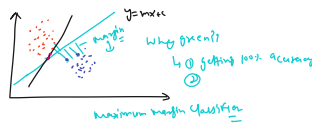 y=mx+c
margin
Why green??
↳ ① getting 100% accuracy
②
maximum margin classifier